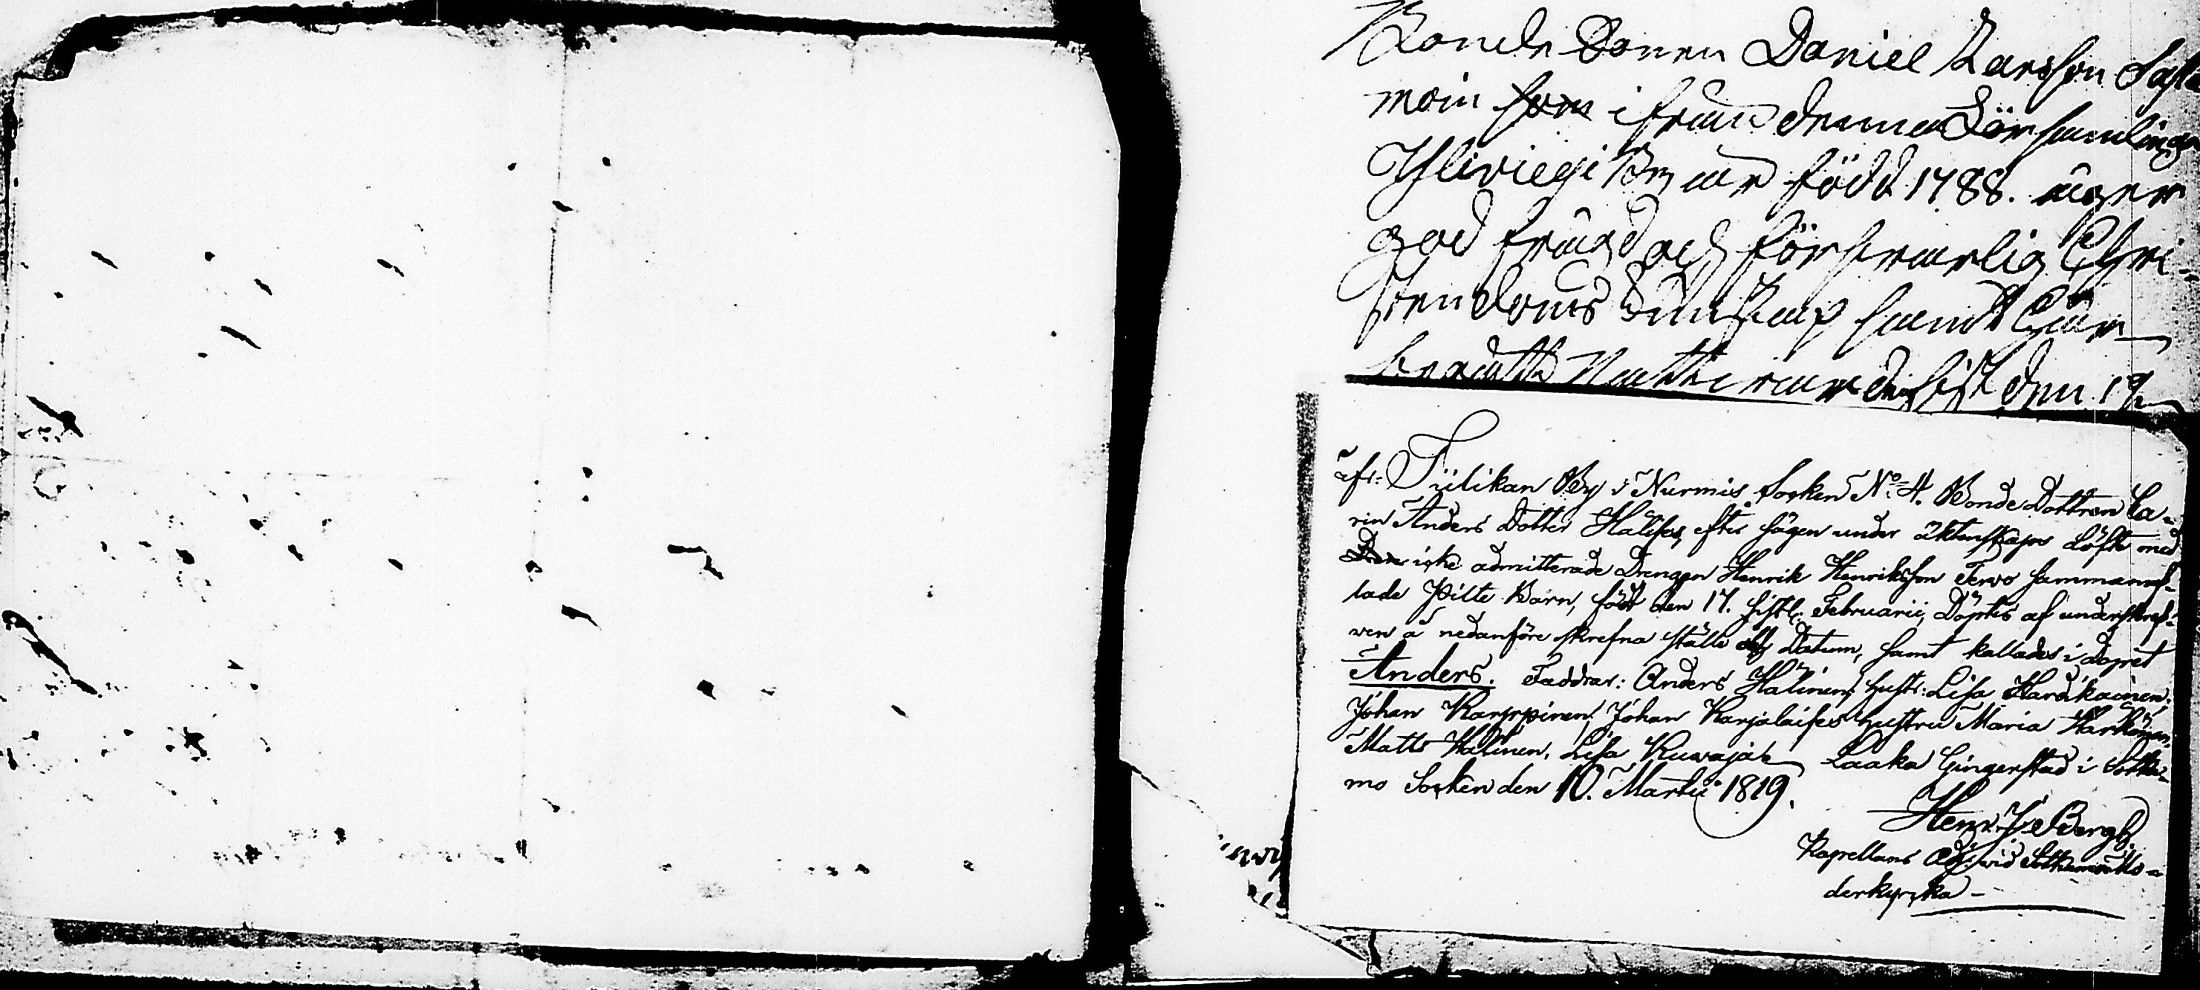 Bonde Sonen Daniel Larsson
moin som ifrån denna Församlings
Ylivieski By är född 1788. äger
god frägd och försvarlig Chri-
stendoms kunskap samt
den 19
Tiilikan By i Nurmis Socken No 4. Bonde Dottren Ca-
rin Anders Dotter Halises, efter sägen under äktenskaps Löfte med
icke admitterade Drengen Henrik Henriksson Tervo sammanaf-
lade Pilte Barn, födt den 17. sistl. Februarii, Döptes af underskref-
ven å nedanföre skrefna ställe och Datum, samt kallades i Dopet
Anders. Faddrar: Anders Halinen, hustr: Lisa Hardikainen.
Johan Karppinen, Johan Karjalaises hustru Maria
Matts Halinen, Lisa Laaka Gingerstad i Sotka-
mo Socken den 10. Martii 1819.
Henr. Bergh
Kapellans Adj. vid Sotkamo Mo-
derkyrka